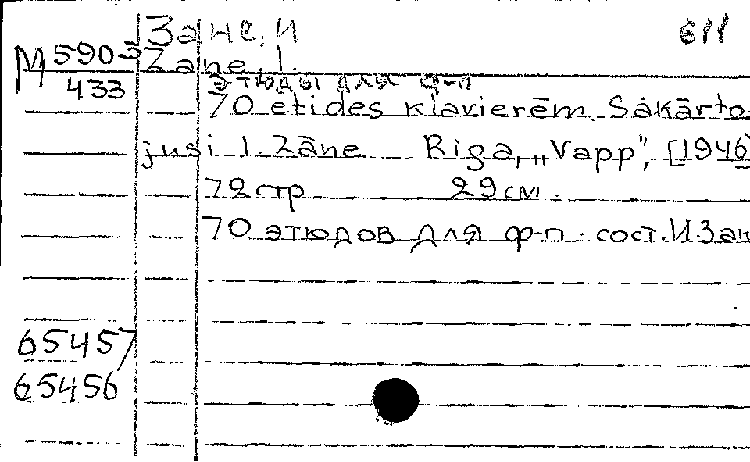 Зане, И
611
М 5903
433
Zane, I.
Этюды для ф-п
70 etides klavierēm. Sakārto
jusi I. Zāne Riga, „Vapp", [1946
72 стр 29 см.
70 этюдов для ф-п. сост. И Зан
65457
65456